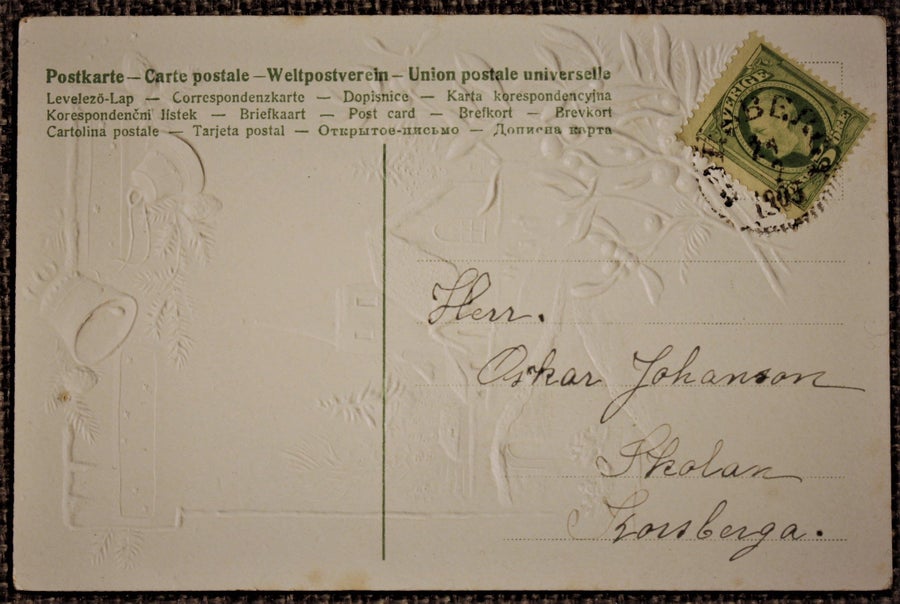 Postkarte – Carte postale – Weltpostverein – Union postale universelle
Levelező-Lap — Correspondenzkarte — Dopisnice — Karta korespondencyjna
Korespondenční lístek — Briefkaart — Post card — Brefkort — Brevkort
Cartolina postale — Tarjeta postal — Открытое-письмо — Дописна карта
SVERIGE
1909
Herr.
Oskar Johanson
Skolan
Korsberga.